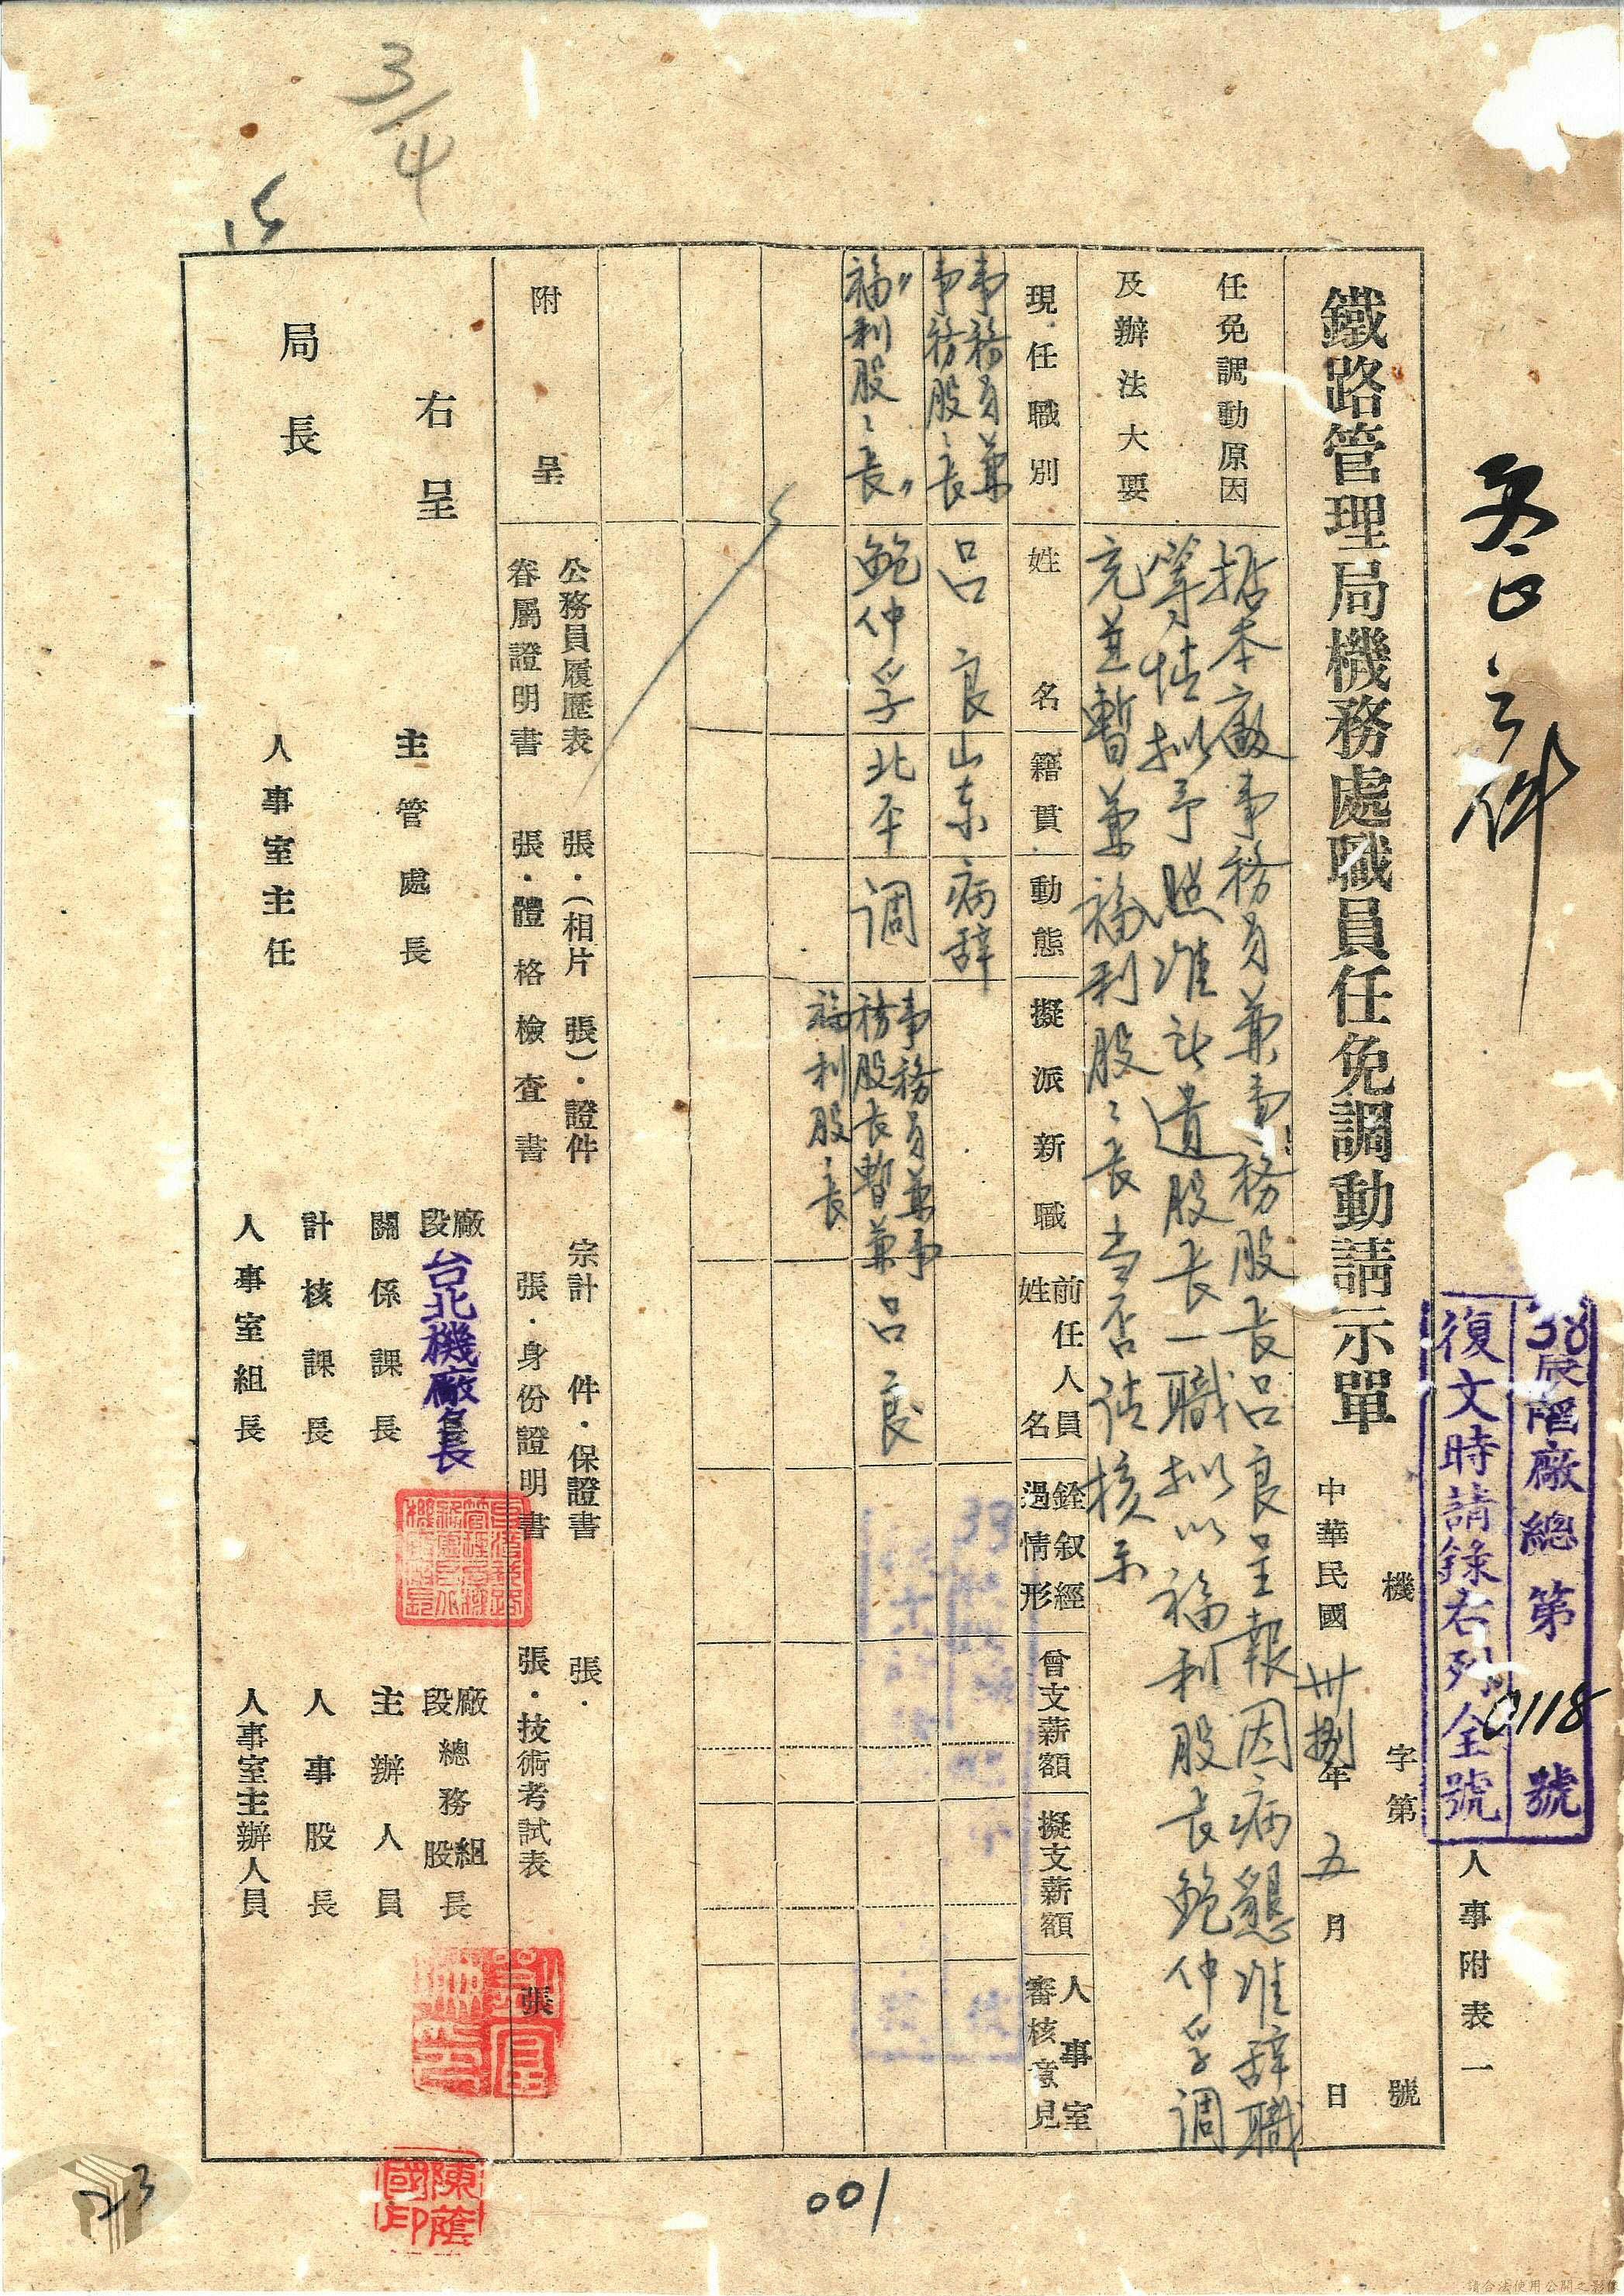 3/4
15
之件
38辰陷廠總第0118號
復文時請錄右列全號
人事附表一
鐵路管理局機務處職員任免調動請示單
機 字第 號
中華民國卅捌年五月 日
任免調動原因
及辦法大要
据本廠事務員兼事務股長呂良呈報因病懇准辞職
等情拟予照准所遺股長一職拟以福利股長鮑仲孚調
充並暫兼福利股々長当否請核示
現任職別
姓名
籍貫
動態
擬派新職
前任人員姓名
銓叙經過情形
曾支薪額
擬支薪額
人事室審核意見
事務員兼
事務股々長
呂良
山东
病辞
〃
福利股々長〃
鮑仲孚
北平
调
事務員兼事
務股長暫兼
福利股々長
呂良
附呈
公務員履歷表 張・(相片 張)・證件 宗計 件・保證書 張・
眷屬證明書 張・體格檢查書 張・身份證明書 張・技術考試表 張
右呈
局長
主管處長
人事室主任
廠段長
台北機廠廠長
關係課長
計核課長
人事室組長
廠段總務組股長
主辦人員
人事股長
人事室主辦人員
陳蔭國印
001
23
請合法使用公開之影像